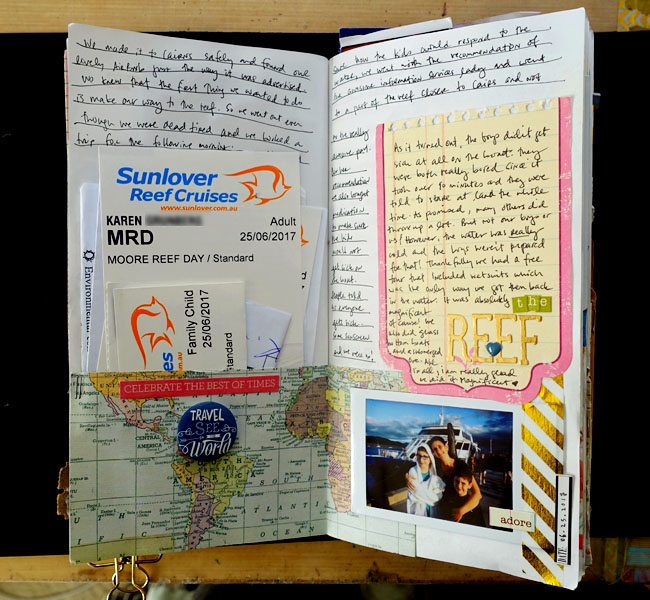 We made it to Cairns safely and found our
lovely Airbnb just the way it was advertised.
We knew that the first thing we wanted to do
is make our way to the reef. So we went out even
though we were dead tired and we booked a
trip for the following morning.
Sunlover
Reef Cruises
www.sunlover.com.au
KAREN
Adult
MRD
25/06/2017
MOORE REEF DAY / Standard
Family Child
25/06/2017
Standard
Environmental
CELEBRATE THE BEST OF TIMES
TRAVEL
SEE
the
World
CENTRAL
AMERICA
SOUTH
AMERICA
ATLANTIC
OCEAN
sure how the kids would respond to the
water, we went with the recommendation of
the awesome information services lady and went
to a part of the reef closer to Cairns and not
As it turned out, the boys didn't get
sick at all on the boat. They
were both really bored since it
took over 90 minutes and they were
told to stare at land the whole
time. As promised, many others did
throw up a lot. But not our boys or
us! However, the water was really
cold and the boys weren't prepared
for that! Thankfully we had a free
tour that included wetsuits which
was the only way we got them back
in the water. It was absolutely
magnificent
the
REEF
of course! We
also did glass
bottom boats
and a submerged
All in all, I am really glad
we did it. Magnificent
adore
DATE 06.25.2017